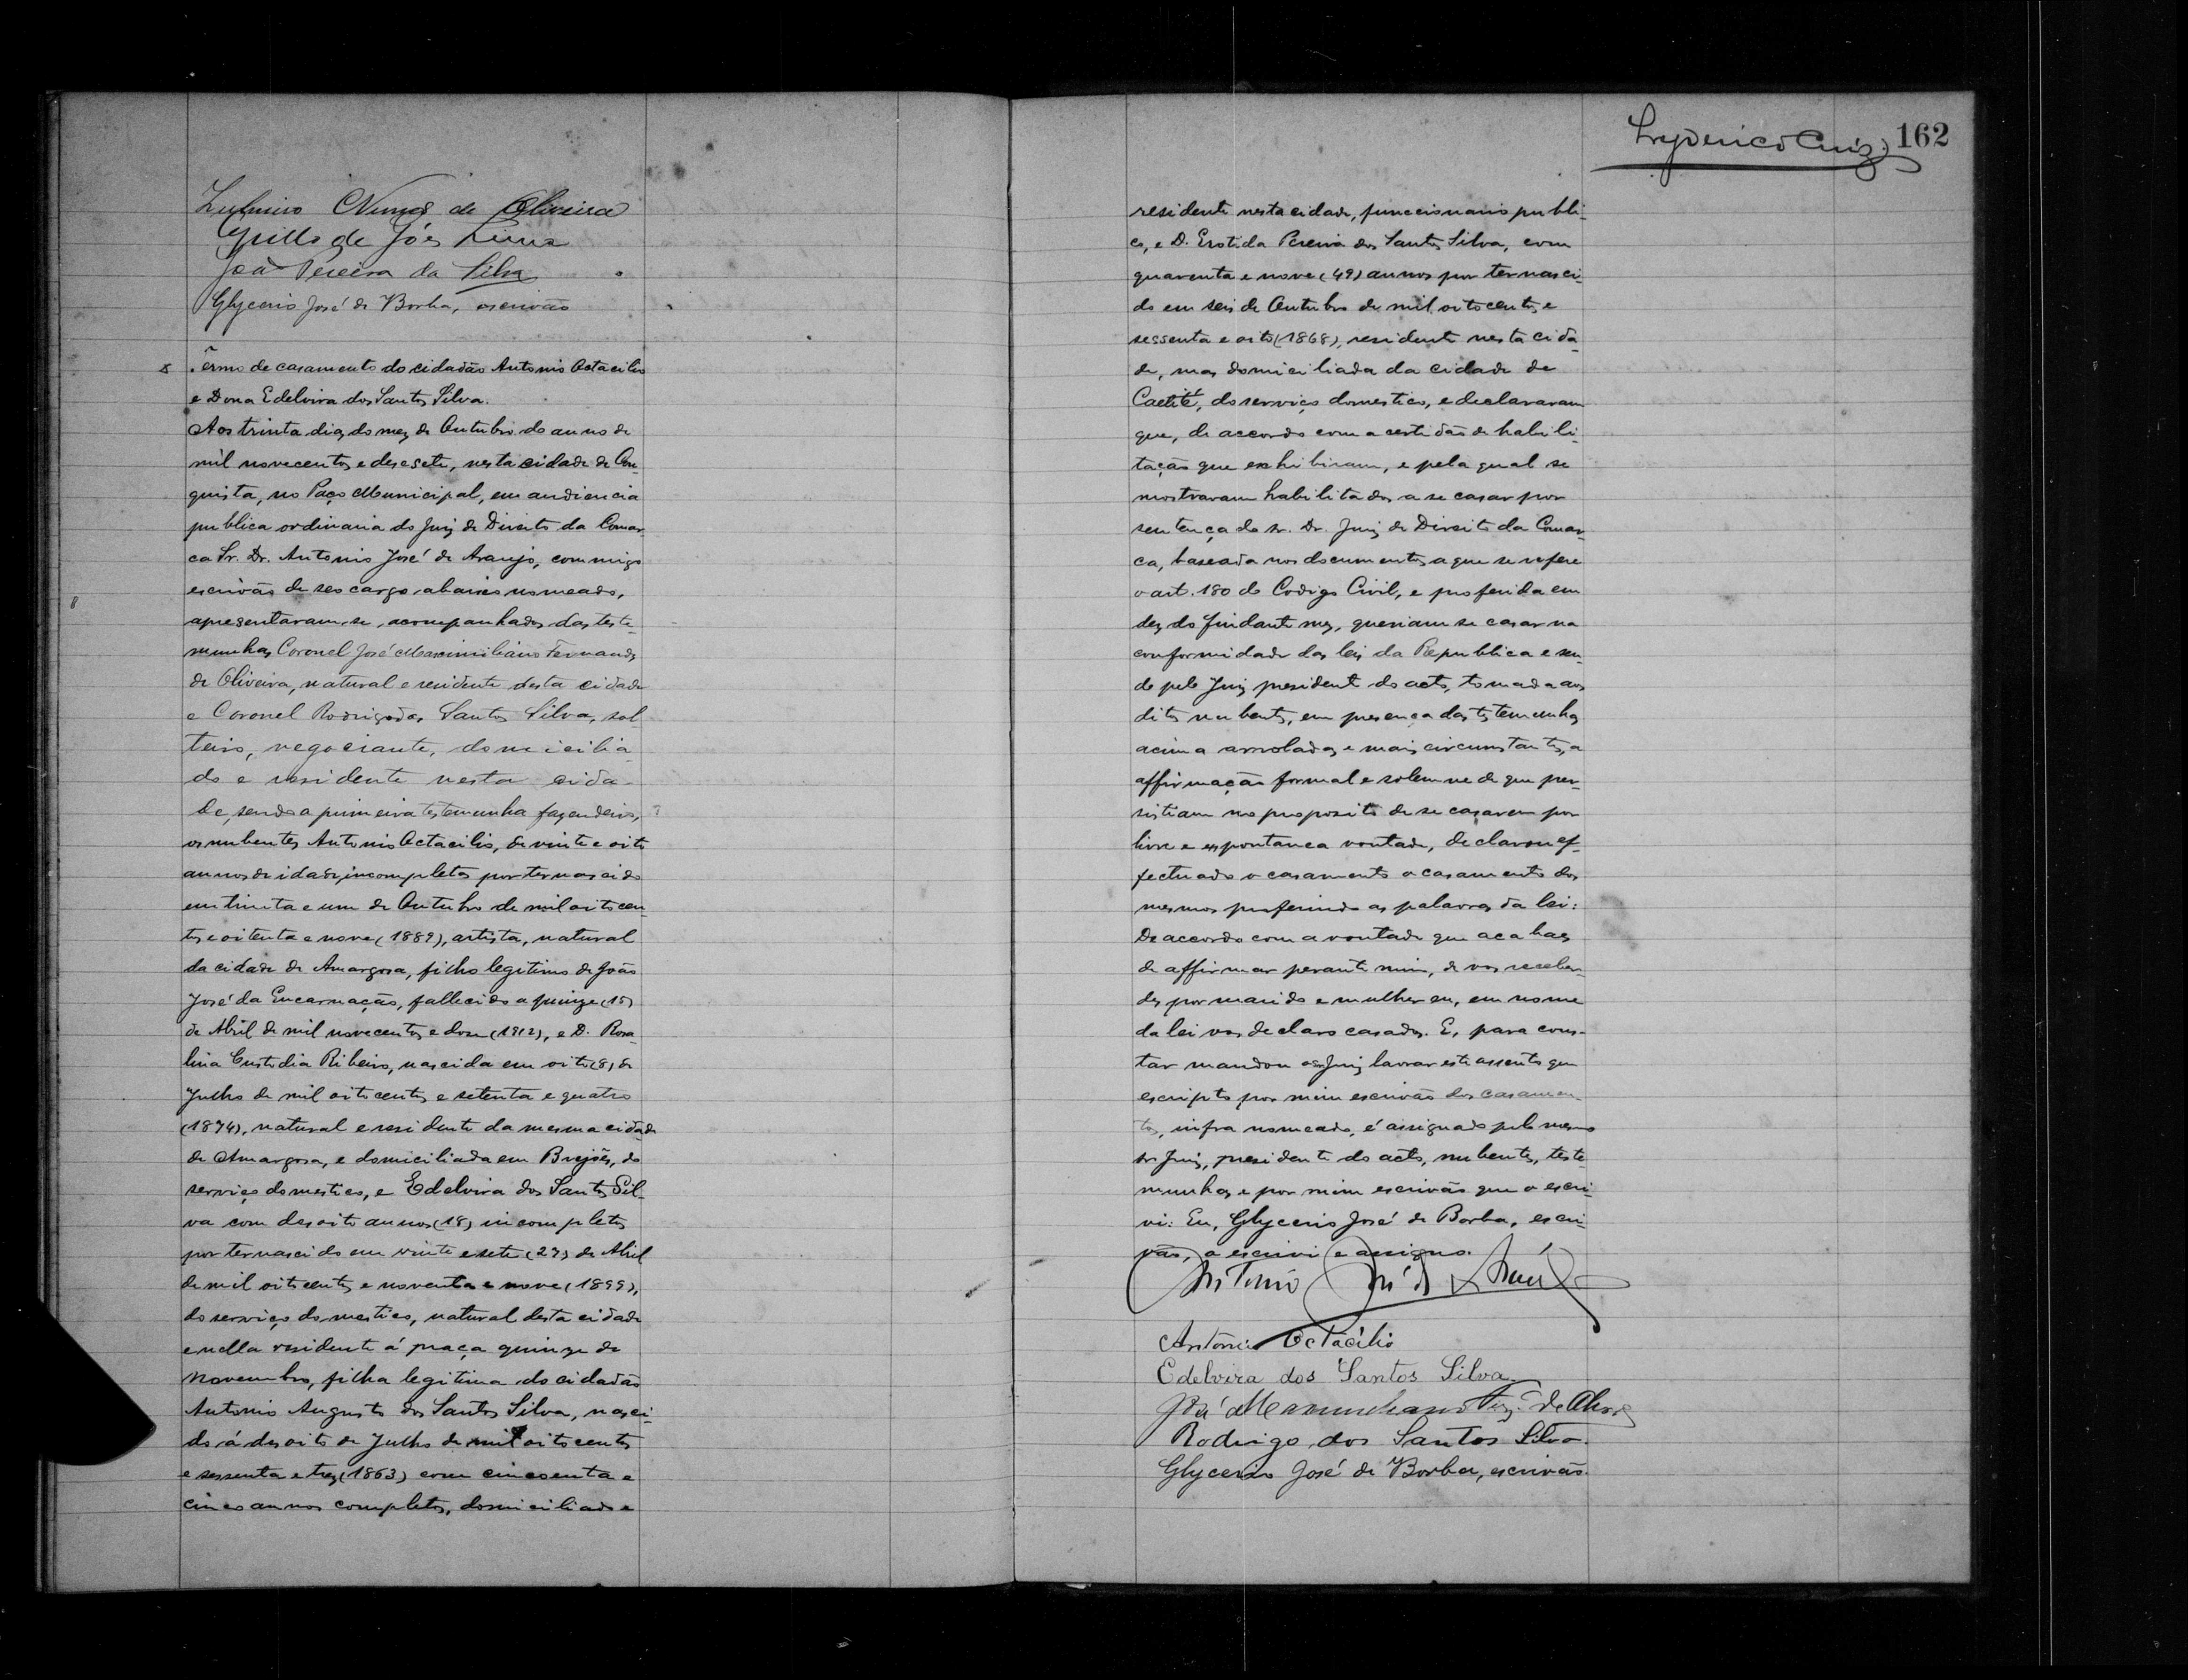 Nunes de Oliveira
de Góes Lima
João Pereira da Silva
Glycerio José de Borba, escrivão
Têrmo de casamento do cidadão Antonio Octacilio
e Dona Edelvira dos Santos Silva.
Aos trinta dias do mez de Outubro do anno de
mil novecentos e desesete, nesta cidade de Con-
quista, no Paço Municipal, em audiencia
publica ordinaria do Juiz de Direito da Comar-
ca Sr. Dr. Antonio José de Araujo, commigo
escrivão de seo cargo abaixo nomeado,
apresentaram-se, acompanhados das teste-
munhas Coronel José Maximiliano Fernandes
de Oliveira, natural e residente desta cidade
e Coronel Rodrigo dos Santos Silva, sol-
teiro, negociante, domicilia-
do e residente nesta cida-
de, sendo a primeira testemunha fazendeiro,
os nubentes Antonio Octacilio, de vinte e oito
annos de idade, incompletos por ter nascido
em trinta e um de Outubro de mil oitocen-
tos e oitenta e nove (1889), artista, natural
da cidade de Amargosa, filho legitimo de João
José da Encarnação, fallecido a quinze (15)
de Abril de mil novecentos e dose (1912), e D. Rosa-
lina Custodia Ribeiro, nascida em oito (8) de
Julho de mil oitocentos e setenta e quatro
(1874), natural e residente da mesma cidade
de Amargosa, e domiciliada em Brejões, do
serviço domestico, e Edelvira dos Santos Sil-
va com desoito annos (18) incompletos
por ter nascido em vinte e sete (27) de Abril
de mil oitocentos e noventa e nove (1899),
do serviço domestico, natural desta cidade
e nella residente á praça quinze de
Novembro, filha legitima do cidadão
Antonio Augusto dos Santos Silva, nasci-
do á desoito de Julho de mil oitocentos
e sessenta e trez (1863) com cincoenta e
cinco annos completos, domiciliado e
162
residente nesta cidade, funccionario publi-
co, e D. Erotida Pereira dos Santos Silva, com
quarenta e nove (49) annos por ter nasci-
do em seis de Outubro de mil oitocentos e
sessenta e oito (1868), residente nesta cida-
de, mas domiciliada da cidade de
Caetité, do serviço domestico, e declararam
que, de accordo com a certidão de habili-
tação que exhibiram, e pela qual se
mostraram habilitados a se casar por
sentença do sr. Dr. Juiz de Direito da Comar-
ca, baseada nos documentos a que se refere
o art. 180 do Codigo Civil, e proferida em
dez do findante mez, queriam se casar na
conformidade das leis da Republica e sen-
do pelo Juiz presidente do acto, tomada aos
ditos nubentes, em presença das testemunhas
acima arroladas e mais circumstantes, a
affirmação formal e solemne de que per-
sistiam no proposito de se casarem por
livre e espontanea vontade, declarou ef-
fectuado o casamento o casamento dos
mesmos proferindo as palavras da lei:
De accordo com a vontade que acabaes
de affirmar perante mim, de vos receber-
des por marido e mulher eu, em nome
da lei vos declaro casados. E, para cons-
tar mandou o Juiz lavrar este assento que
escripto por mim escrivão dos casamen-
tos, infra nomeado, é assignado pelo mesmo
sr. Juiz, presidente do acto, nubentes, teste-
munhas e por mim escrivão que o escri-
vi: Eu, Glycerio José de Borba, escri-
vão, o escrivi e assigno.
Antonio José de Araujo
Antonio Octacilio
Edelvira dos Santos Silva
José Maximiliano Fez. de Olivra
Rodrigo dos Santos Silva.
Glycerio José de Borba, escrivão.